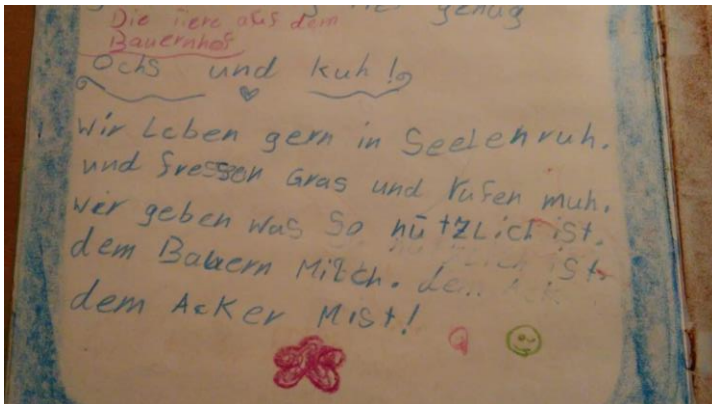 genug
Die Tiere aus dem
Bauernhof
Ochs und Kuh!
Wir Leben gern in Seelenruh.
und fressen Gras und rufen muh.
Wir geben was so nützlich ist.
dem Bauern Milch.
dem Acker Mist!